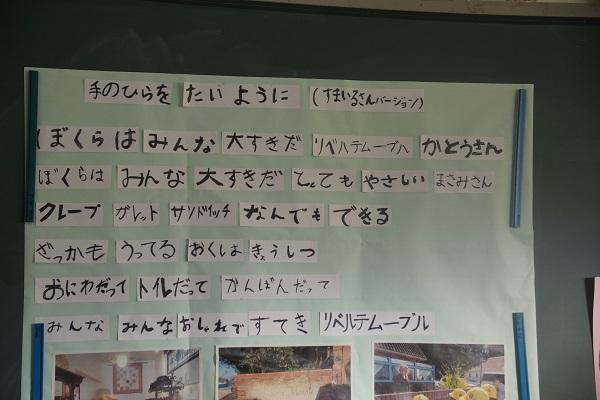 手のひらを たいように (すまいるさんバージョン)
ぼくらは みんな 大すきだ リベルテムーブル かとうさん
ぼくらは みんな 大すきだ とても やさしい まさみさん
クレープ ガレット サンドイッチ なんでも できる
ざっかも うってる おくは きょうしつ
おにわだって トイレだって かんばんだって
みんな みんな おしゃれで すてき リベルテムーブル